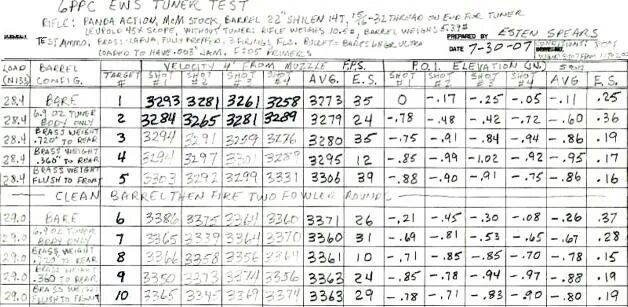 6PPC EWS TUNER TEST
RIFLE: PANDA ACTION, McM STOCK, BARREL 22" SHILEN 14T, 15/16-32 THREAD ON END FOR TUNER
LEUPOLD 45X SCOPE, WITHOUT TUNER: RIFLE WEIGHTS 10.5#, BARREL WEIGHS 5.39#
TEST AMMO, BRASS: LAPUA, FULLY PREPPED, BULLET: BARTS ULTRA
LOADED TO HAVE .003" JAM. F205 PRIMERS
PREPARED BY ESTEN SPEARS
DATE 7-30-07
VELOCITY 4' FROM MUZZLE F.P.S. P.O.I. ELEVATION (IN.)
LOAD (N133) BARREL CONFIG. TARGET # SHOT #1 SHOT #2 SHOT #3 SHOT #4 AVG. E.S. SHOT #1 SHOT #2 SHOT #3 SHOT #4 AVG. E.S.
28.4 BARE 1 3293 3281 3261 3258 3273 35 0 -.17 -.25 -.05 -.11 .25
28.4 6.9 OZ TUNER BODY ONLY 2 3284 3265 3281 3289 3279 24 -.78 -.48 -.42 -.72 -.60 .36
28.4 BRASS WEIGHT .720" TO REAR 3 3294 3291 3259 3276 3280 35 -.75 -.91 -.84 -.94 -.86 .19
28.4 BRASS WEIGHT .360" TO REAR 4 3297 3289 3295 12 -.85 -.99 -1.02 -.92 -.95 .17
28.4 BRASS WEIGHT FLUSH TO FRONT 5 3303 3292 3299 3331 3306 39 -.88 -.90 -.91 -.75 -.86 .16
CLEAN BARREL THEN FIRE TWO FOWLER ROUNDS
29.0 BARE 6 3386 3375 3364 3360 3371 26 -.21 -.45 -.30 -.08 -.26 .37
29.0 6.9 OZ TUNER BODY ONLY 7 3365 3339 3364 3370 3360 31 -.69 -.81 -.53 -.65 -.67 .28
29.0 BRASS WEIGHT .720 TO REAR 8 3366 3358 3356 3364 3361 10 -.71 -.85 -.85 -.70 -.78 .15
29.0 BRASS WEIGHT .360 TO REAR 9 3350 3373 3374 3356 3363 24 -.85 -.78 -.94 -.97 -.88 .19
29.0 BRASS WEIGHT FLUSH TO FRONT 10 3365 3345 3369 3374 3363 29 -.78 -.71 -.83 -.90 -.80 .19